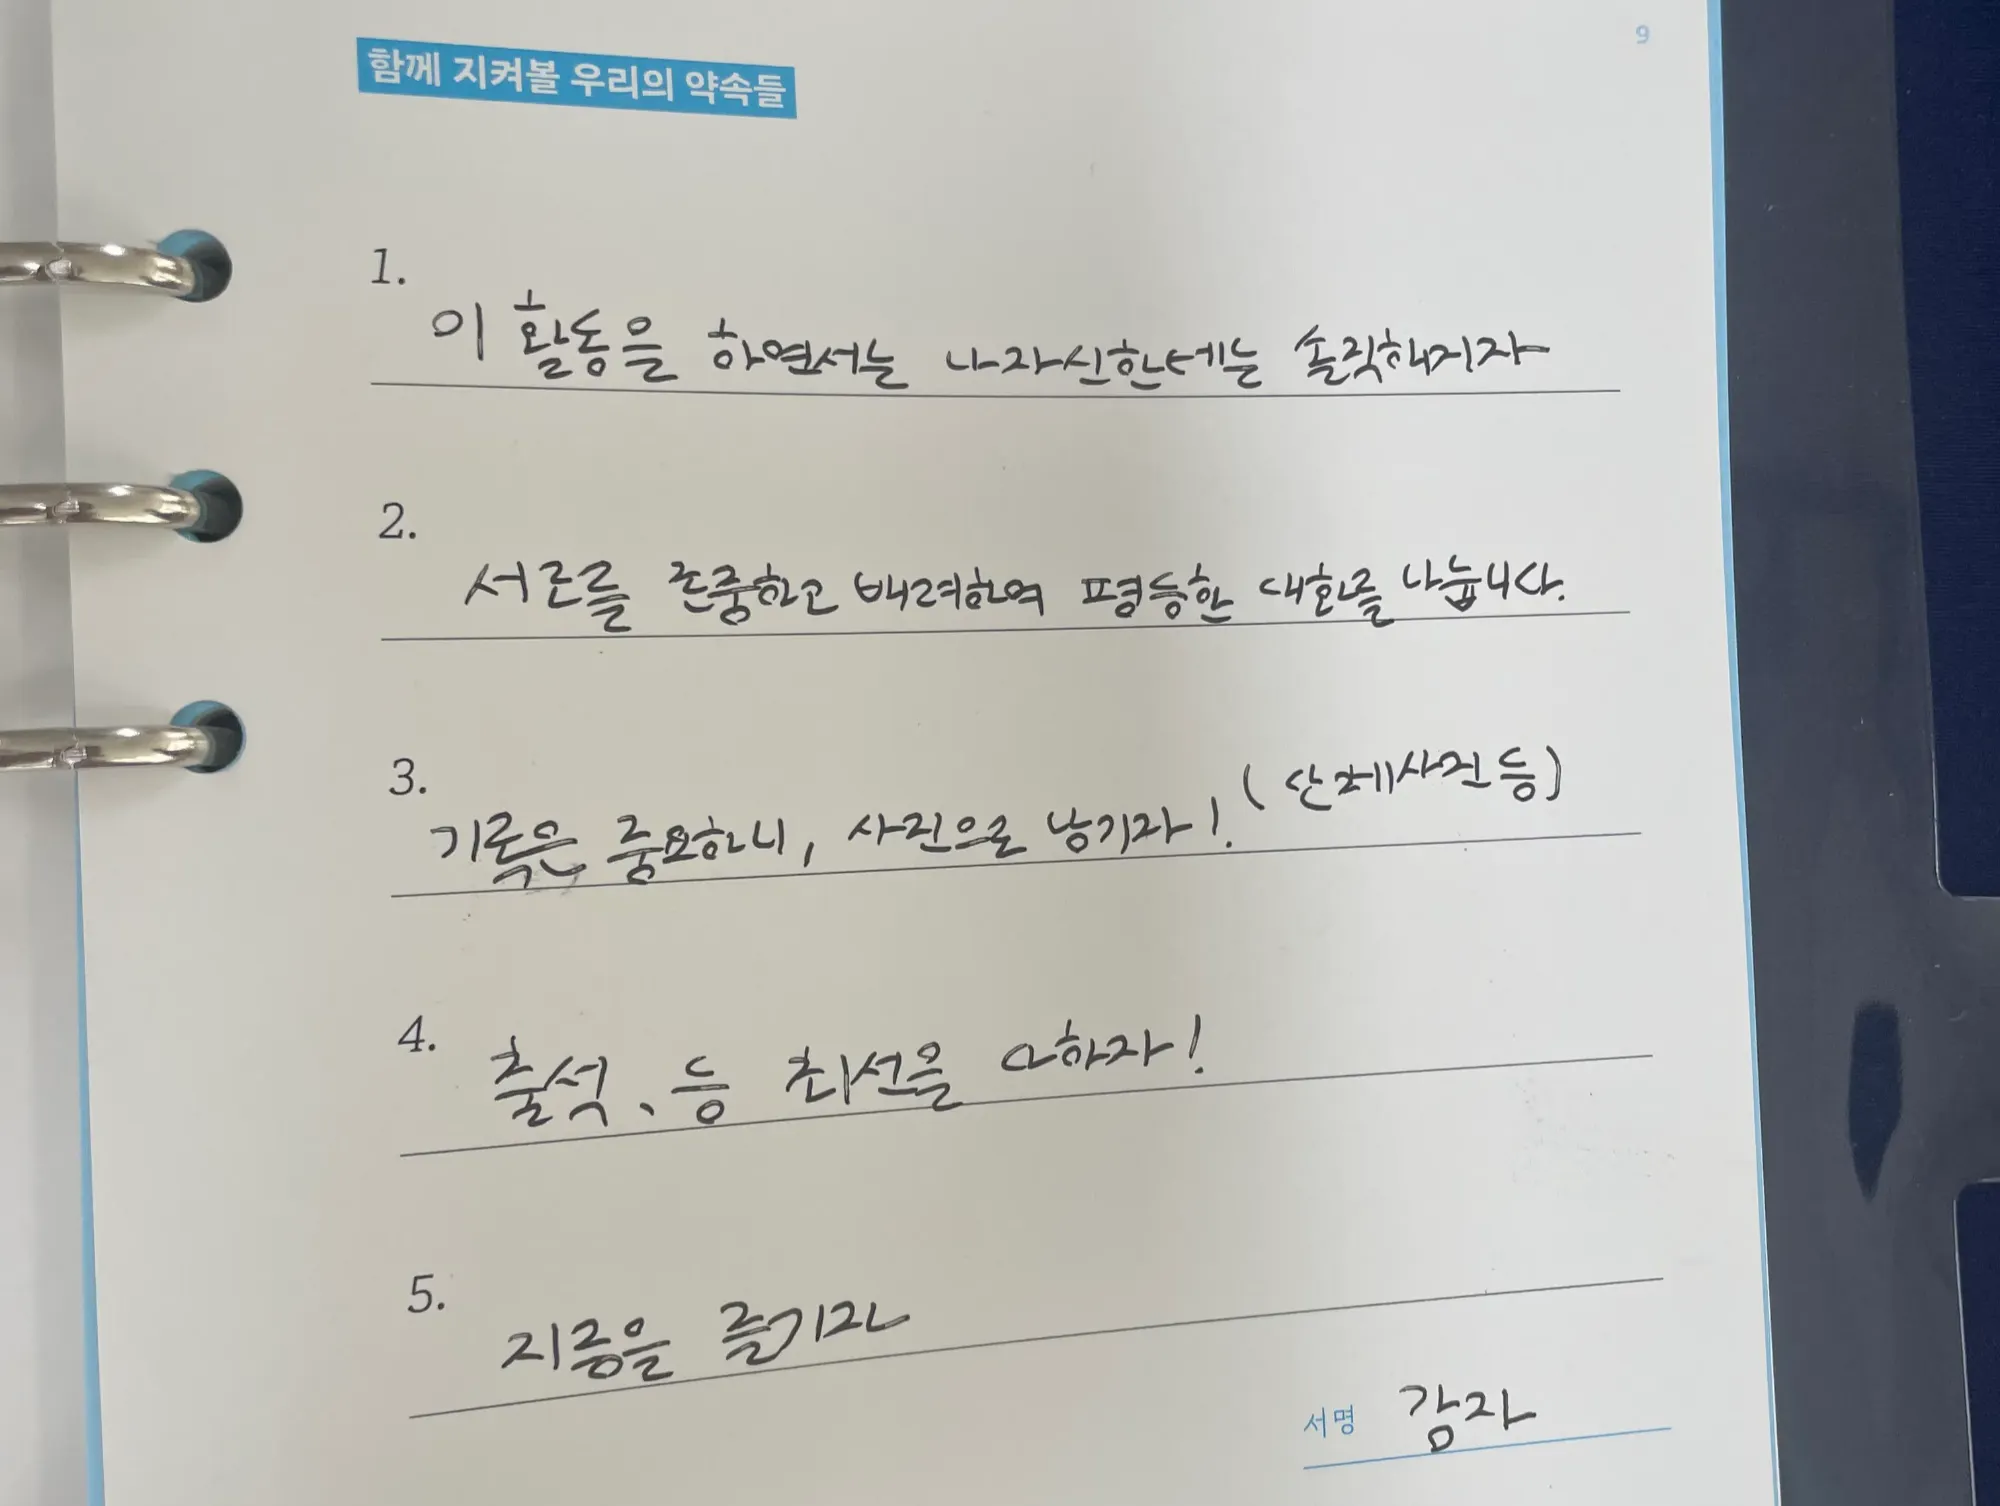 9
함께 지켜볼 우리의 약속들
1.
이 활동을 하면서는 나자신한테는 솔직해지자
2.
서로를 존중하고 배려하여 평등한 대화를 나눕니다.
3.
기록은 중요하니, 사진으로 남기자! (단체사진 등)
4.
출석, 등 최선을 다하자!
5.
지금을 즐기자
서명 감자